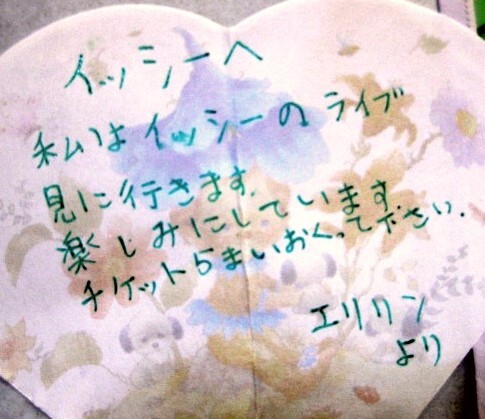 イッシーへ
私はイッシーのライブ
見に行きます.
楽しみにしています.
チケット5まいおくって下さい.
エリリン
より